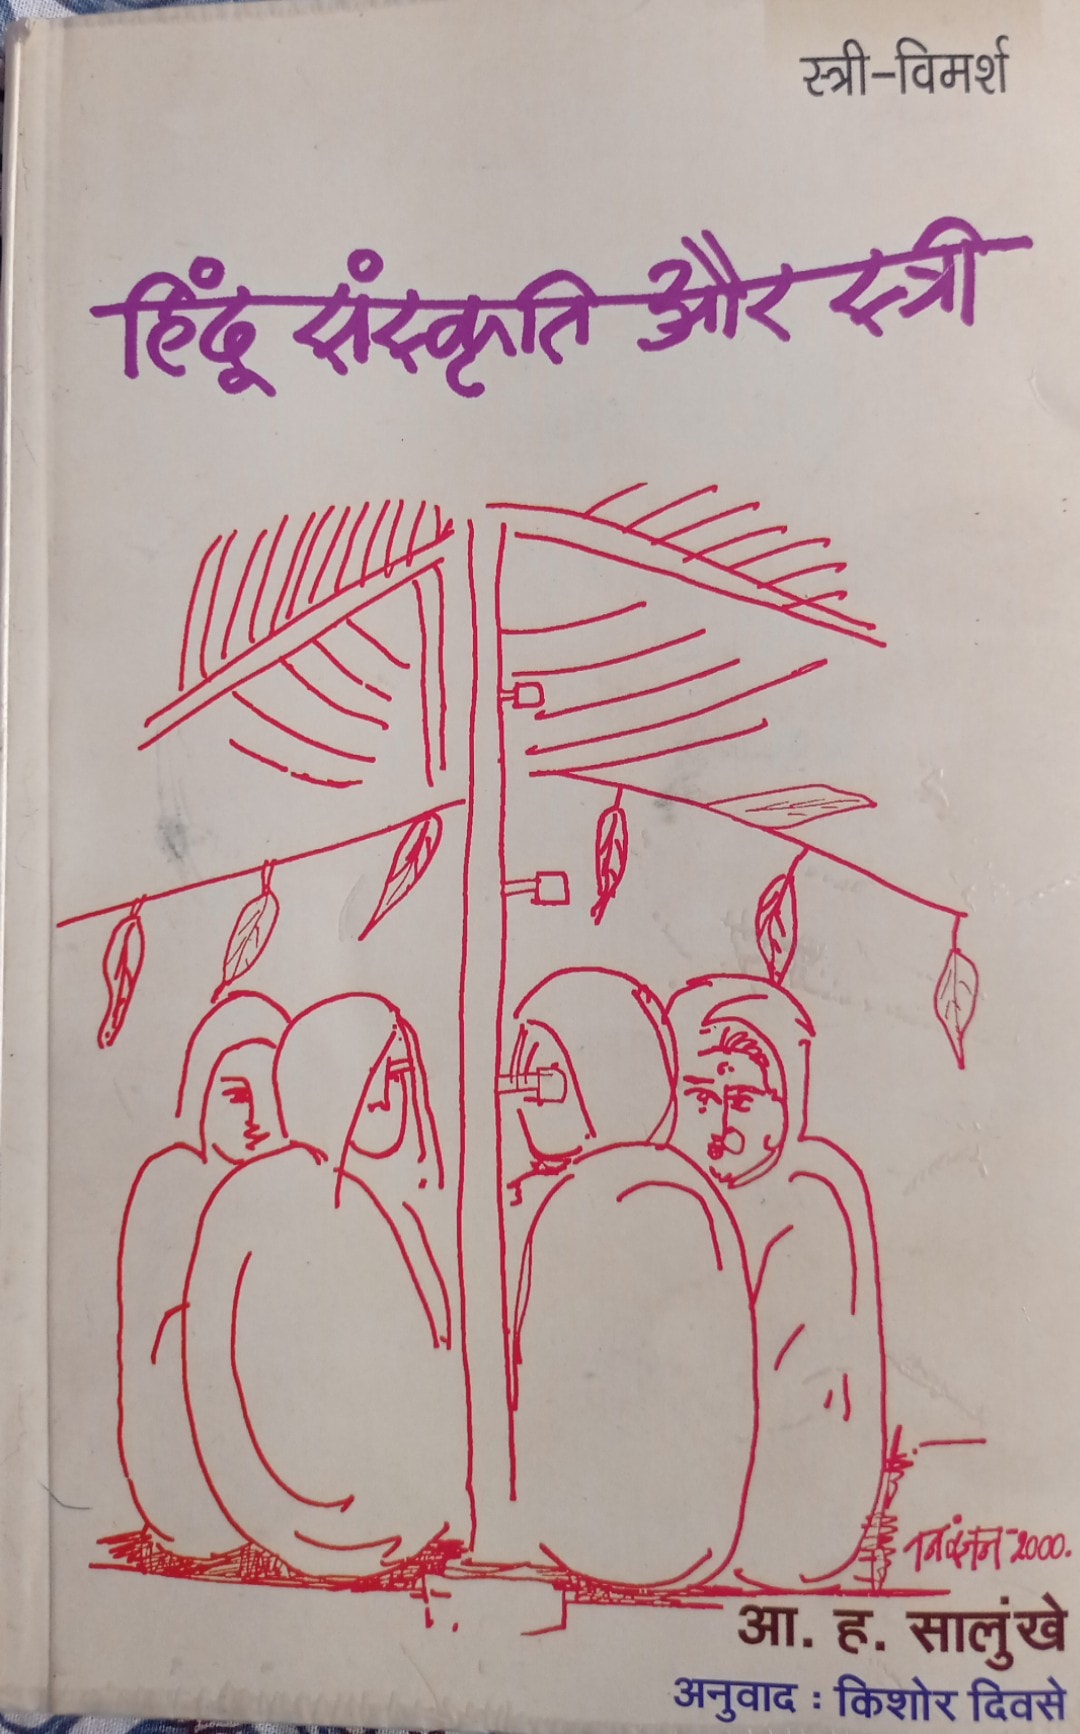 स्त्री-विमर्श
हिंदू संस्कृति और स्त्री
2000.
आ. ह. सालुंखे
अनुवाद : किशोर दिवसे